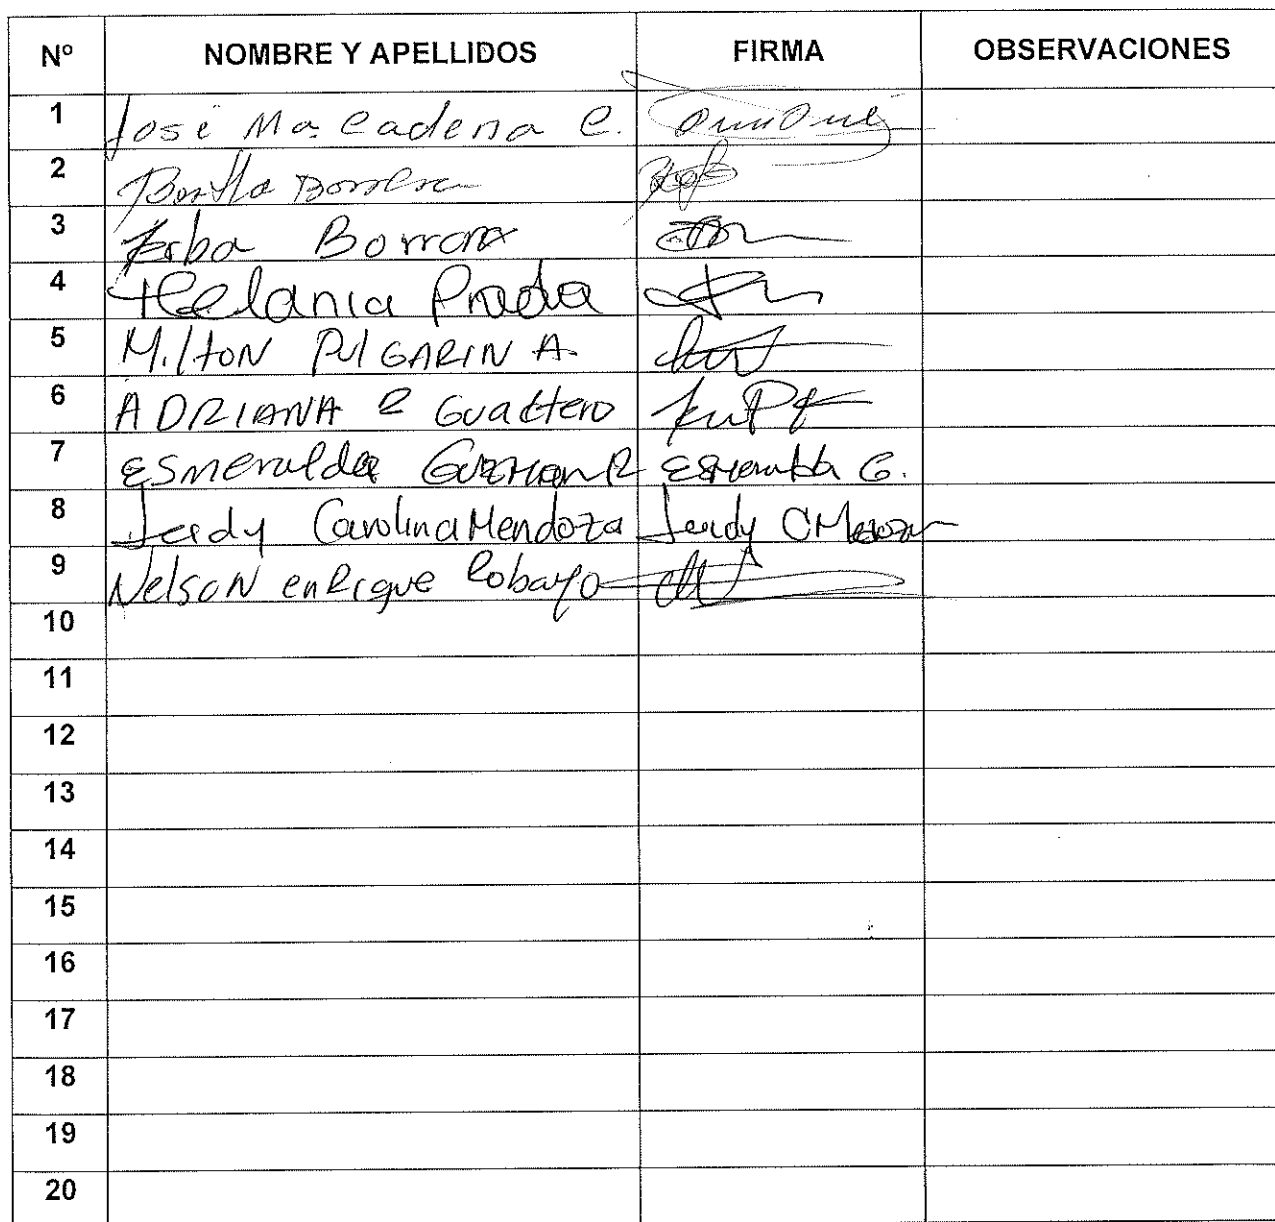 Nº NOMBRE Y APELLIDOS FIRMA OBSERVACIONES
1 José Ma. Cadena C.
2
3 Borrero
4 Melania Prada
5 Milton PulGARIN A.
6 ADRIANA P Gualtero
7 Esmeralda Guzman R Esmeralda G.
8 Leidy Carolina Mendoza Leidy C Mendoza
9 Nelson enRique Robayo
10
11
12
13
14
15
16
17
18
19
20